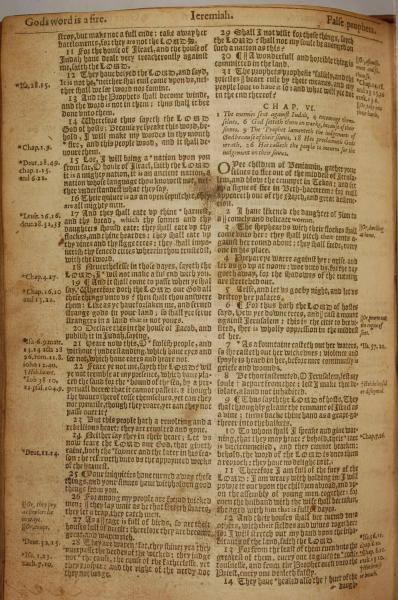 Gods word is a fire. Ieremiah. False prophets.
stroy, but make not a full end: take away her
battlements, for they are not the LORDS.
11 For the house of Israel, and the house of
Iudah haue dealt very treacherously against
me, saith the LORD.
12 They haue belyed the LORD, and sayd,
It is not he, neither shall euill come vpon vs, nei-
ther shall we see sword nor famine.
13 And the Prophets shall become winde,
and the word is not in them: thus shall it bee
done vnto them.
14 Wherefore thus sayth the LORD
God of hosts; Because ye speake this word, be-
hold, I will make my words in thy mouth
fire, and this people wood, and it shall de-
uoure them.
15 Loe, I will bring a nation vpon you
from far, O house of Israel, saith the LORD:
it is a mighty nation, it is an ancient nation, a
nation whose language thou knowest not, nei-
ther vnderstandest what they say.
16 Their quiuer is as an open sepulchre, they
are all mighty men.
17 And they shall eate vp thine haruest,
and thy bread, which thy sonnes and thy
daughters should eate: they shall eate vp thy
flockes, and thine heardes: they shall eate vp
thy vines and thy figge trees: they shall impo-
uerish thy fenced cities wherein thou trustedst,
with the sword.
18 Neuerthelesse in those dayes, sayth the
LORD, I will not make a full end with you.
19 And it shall come to passe when ye shall
say, Wherefore doth the LORD our God all
these things vnto vs? then shalt thou answere
them; Like as ye haue forsaken me, and serued
strange gods in your land; so shall ye serue
strangers in a land that is not yours.
20 Declare this in the house of Iacob, and
publish it in Iudah, saying,
21 Heare now this, O foolish people, and
without vnderstanding, which haue eyes and
see not, which haue eares and heare not.
22 Feare ye not me, sayth the LORD? will
ye not tremble at my presence, which haue pla-
ced the sand for the bound of the sea, by a per-
petuall decree that it cannot passe it,
and though
the waues thereof tosse themselues, yet can they
not preuaile, though they roare, yet can they not
passe ouer it?
23 But this people hath a reuolting and a
rebellious heart: they are reuolted and gone.
24 Neither say they in their heart; Let vs
now feare the LORD our God, that giueth
raine, both the former and the later in his sea-
son: he reserueth vnto vs the appointed weekes
of the haruest.
25 Your iniquities haue turned away these
things, and your sinnes haue withholden good
things from you.
26 For among my people are found wicked
men: they lay wait as he that setteth snares,
they set a trap, they catch men.
27 As a cage is full of birds, so are their
houses full of deceit: therefore they are become
great, and waxen rich.
28 They are waxen fat, they shine: yea they
ouerpasse the deeds of the wicked: they iudge
not the cause, the cause of the fatherlesse, yet
they prosper: and the right of the needy doe
they not iudge.
29 Shall I not visit for these things, saith
the LORD? shall not my soule be auenged on
such a nation as this?
30 A wonderfull and horrible thing is
committed in the land.
31 The prophets prophesie falsely, and the
priests beare rule by their meanes, and my
people loue to haue it so: and what will yee doe
in the end thereof?
CHAP. VI.
1 The enemies sent against Iudah, 4 encourage them-
selues. 6 God setteth them on worke, because of their
sinnes. 9 The Prophet lamenteth the iudgements of
God because of their sinnes. 18 He proclaimeth Gods
wrath. 26 Hee calleth the people to mourne for the
iudgement on their sinnes.
O Yee children of Beniamin, gather your
selues to flee out of the middest of Ierusa-
lem, and blow the trumpet in Tekoa: and set
vp a signe of fire in Beth-haccerem: for euill
appeareth out of the North, and great destru-
ction.
2 I haue likened the daughter of Zion to
a comely and delicate woman.
3 The shepheards with their flockes shall
come vnto her: they shall pitch their tents a-
gainst her round about: they shall feed, euery
one in his place.
4 Prepare ye warre against her: arise and
let vs go vp at noone: woe vnto vs, for the day
goeth away, for the shadowes of the euening
are stretched out.
5 Arise, and let vs goe by night, and let vs
destroy her palaces.
6 For thus hath the LORD of hosts
sayd, Hew ye downe trees, and cast a mount
against Ierusalem: this is the citie to be vi-
sited, she is wholly oppression in the middest
of her.
7 As a fountaine casteth out her waters,
so she casteth out her wickednes: violence and
spoyle is heard in her, before me continually is
griefe and wounds.
8 Be thou instructed, O Ierusalem, lest my
soule depart from thee: lest I make thee de-
solate, a land not inhabited.
9 Thus sayth the LORD of hosts, They
shall throughly gleane the remnant of Israel as
a vine: turne backe thine hand as a grape ga-
therer into the baskets.
10 To whom shall I speake and giue war-
ning, that they may heare? behold, their eare
is vncircumcised, and they cannot hearken:
behold, the word of the LORD is vnto them
a reproch: they haue no delight in it.
11 Therefore I am full of the fury of the
LORD: I am weary with holding in: I will
powre it out vpon the children abroad, and vp-
on the assembly of young men together: for
euen the husband with the wife shall be taken,
the aged with him that is full of dayes.
12 And their houses shall be turned vnto
others, with their fields and wiues together:
for I will stretch out my hand vpon the inha-
bitants of the land, saith the LORD.
13 For from the least of them euen vnto the
greatest of them, euery one is giuen to coue-
tousnesse, and from the Prophet euen vnto the
Priest, euery one dealeth falsly.
14 They haue healed also the hurt of the
daugh-
*Isa. 28.15.
*Chap. 1.9.
*Deut. 28.49.
chap. 1.15.
and 6.22.
*Leuit. 26.16.
deut. 28.31,33
*Chap. 4.27.
*Deut. 11.14.
*Chap. 7.26.